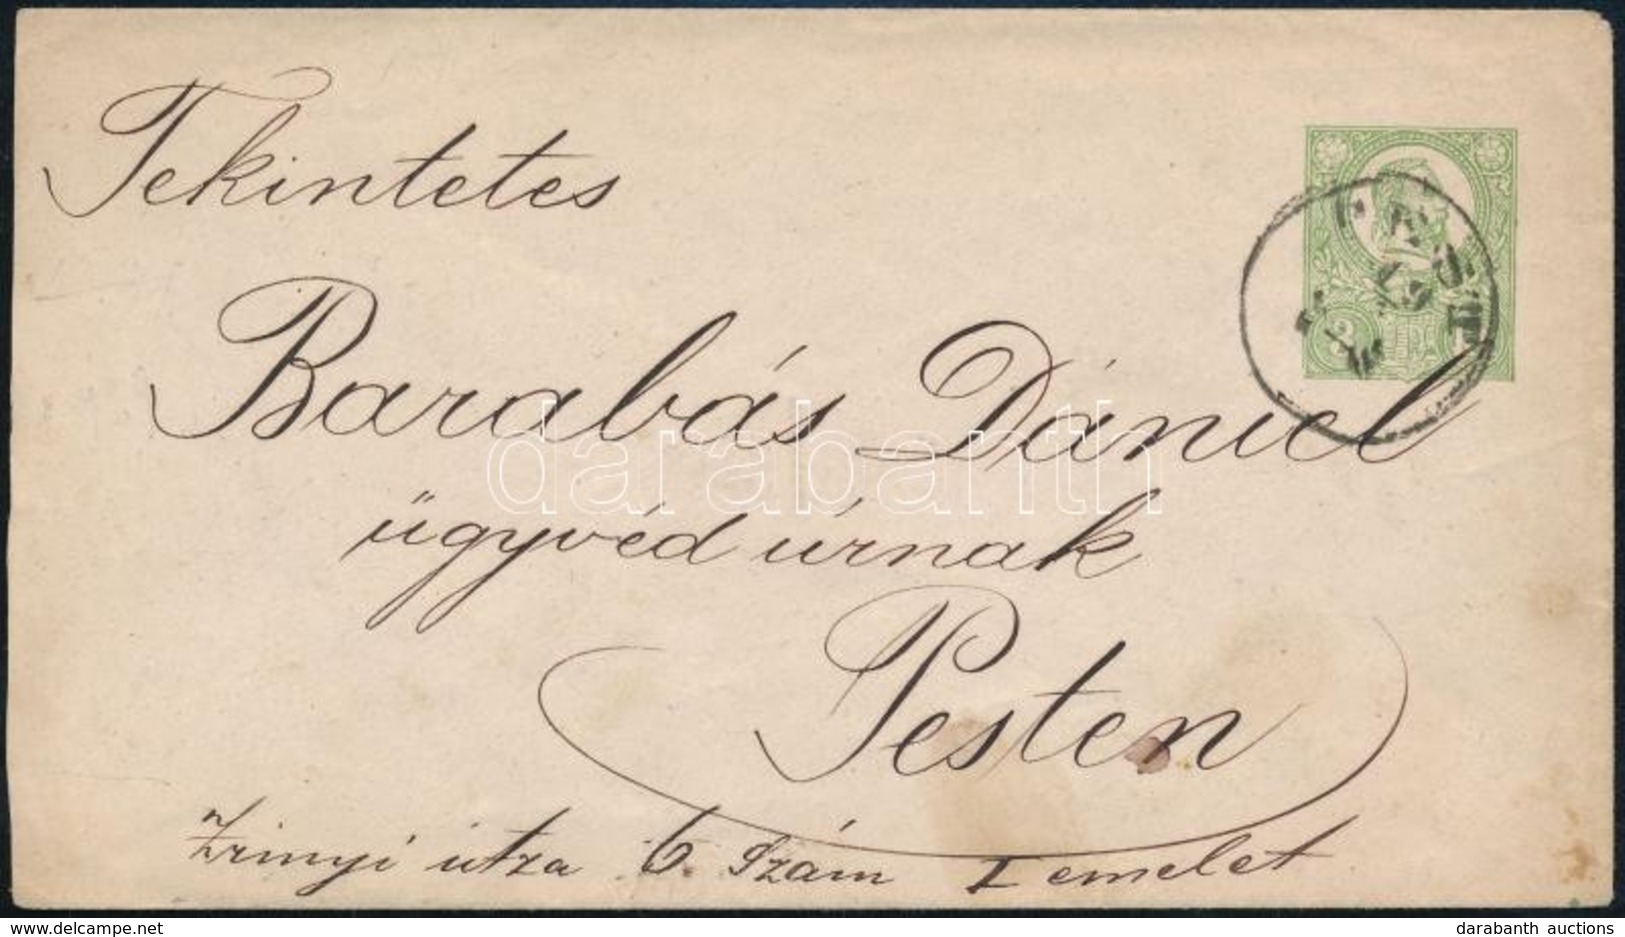 Tekintetes
Barabás Dániel
ügyvéd úrnak
Pesten
Zrinyi útza 6. szám I emelet
darabanth
delcampe.net
darabanth auctions